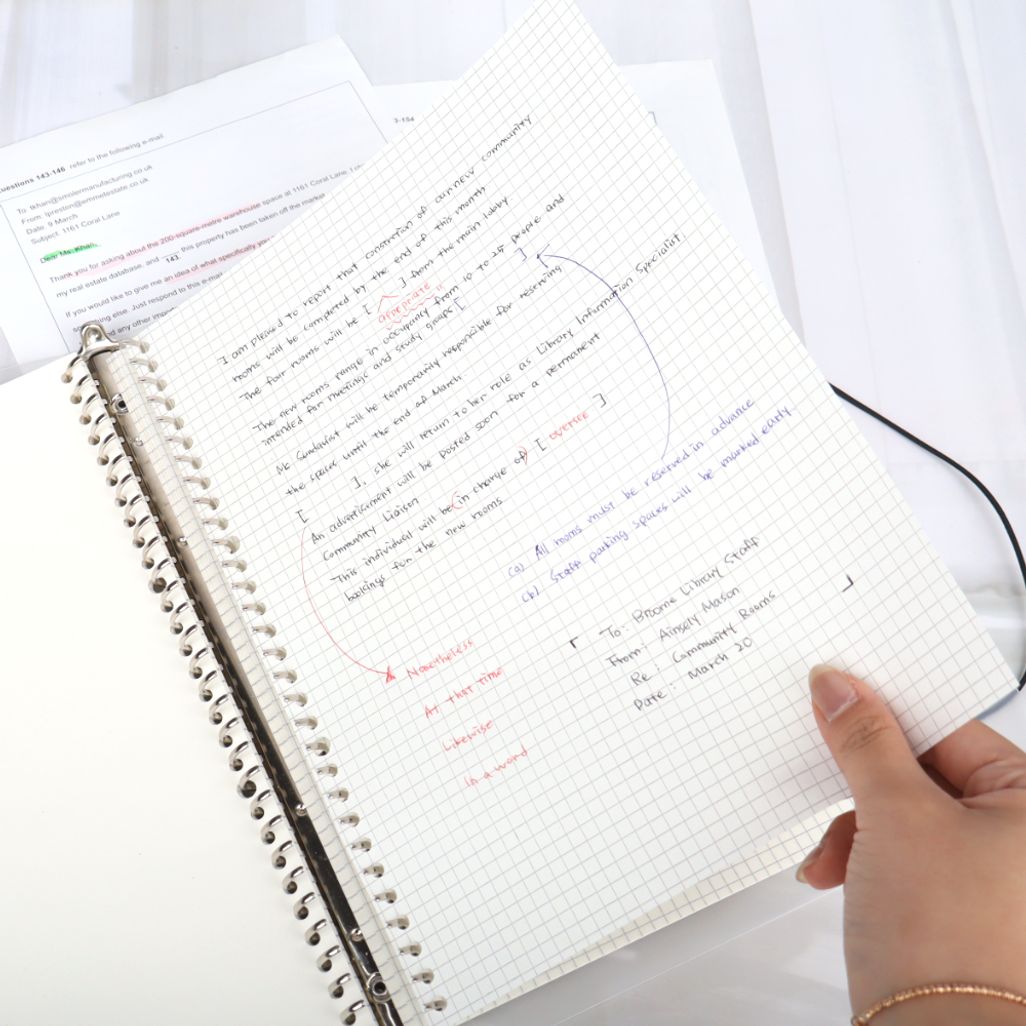 Questions 143-146 refer to the following e-mail
To: tkhan@smolermanufacturing.co.uk
From: lpreston@emmetestate.co.uk
Date: 9 March
Subject: 1161 Coral Lane
Dear Ms. Khan,
Thank you for asking about the 200-square-metre warehouse space at 1161 Coral Lane.
my real estate database, and 143. this property has been taken off the market
If you would like to give me an idea of what specifically you
something else. Just respond to this e-mail
any other
3-154
I am pleased to report that constrction of our new community
rooms will be completed by the end of this month
The four rooms will be [ ] from the main lobby
apropriate
The new rooms range in occupancy from 10 to 25 people and
intended for meetings and study groups [ ]
Ms Sundqvist will be temporarily responsible for reserving
the spaces until the end of March.
[ ], she will return to her role as Library Information Specialist.
An advertisement will be posted soon for a permanent
Community Liaison
This individual will be (in charge of) [ oversee ]
bookings for the new rooms
(a) All rooms must be reserved in advance
(b) Staff parking spaces will be marked early.
Nonetheless
At that time
Likewise
In a word
「 To: Broome Library Staff
From: Ainsely Mason
Re: Community Rooms
Date: March 20 」